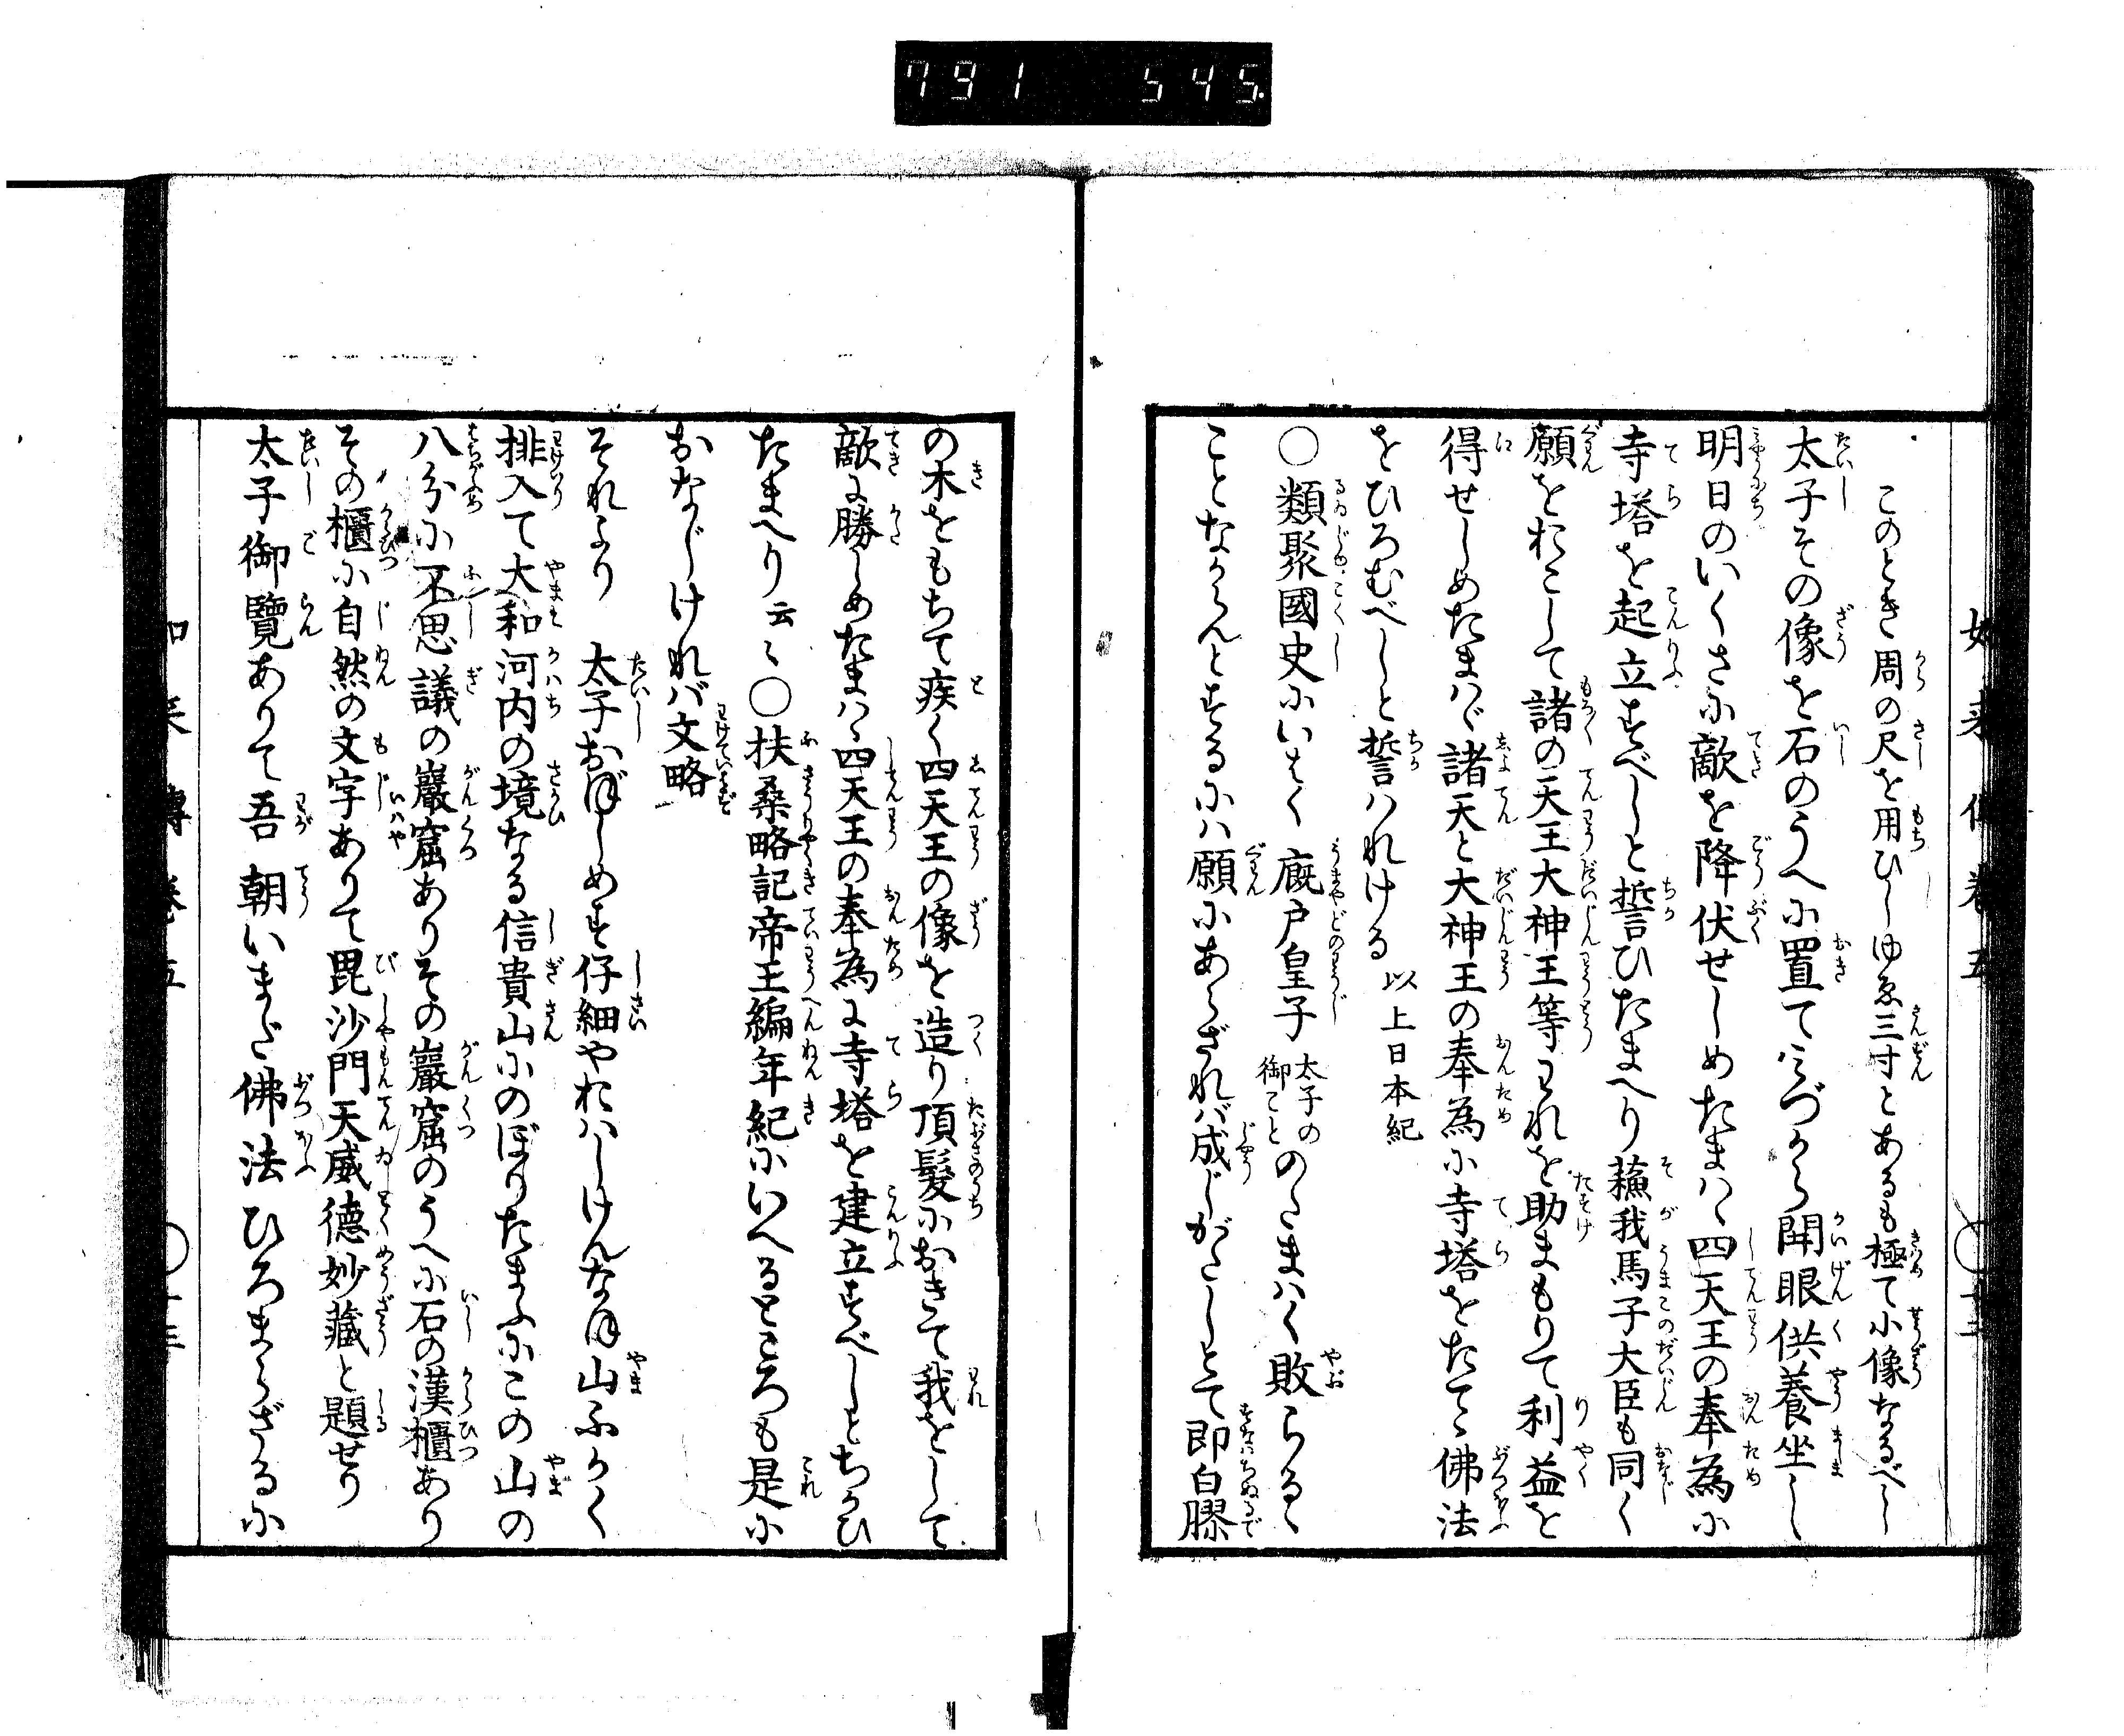 791 545
如来傳巻五
このとき周の尺を用ひしゆゑ三寸とあるも極て小像なるべし
太子その像を石のうへに置てみづから開眼供養坐し
明日のいくさに敵を降伏せしめたまはゞ四天王の奉為に
寺塔を起立すべしと誓ひたまへり蘓我馬子大臣も同く
願をおこして諸の天王大神王等われを助まもりて利益を
得せしめたまはゞ諸天と大神王の奉為に寺塔をたてゝ佛法
をひろむべしと誓はれける 以上日本紀
○類聚國史にいはく 廐戸皇子 太子の御こと のたまはく敗らるゝ
ことなからんとするには願にあらざれバ成じがたしとて即白膠
の木をもちて疾く四天王の像を造り頂髮におきて我をして
敵に勝しめたまはゞ四天王の奉為に寺塔を建立すべしとちかひ
たまへり云々○扶桑略記帝王編年紀にいへるところも是に
おなじけれバ文略
それより 太子おぼしめす仔細やおはしけんなほ山ふかく
排入て大和河内の境なる信貴山にのぼりたまふにこの山の
八分に不思議の巖窟ありその巖窟のうへに石の漢櫃あり
その櫃に自然の文字ありて毘沙門天威德妙藏と題せり
太子御覽ありて吾朝いまだ佛法ひろまらざるに